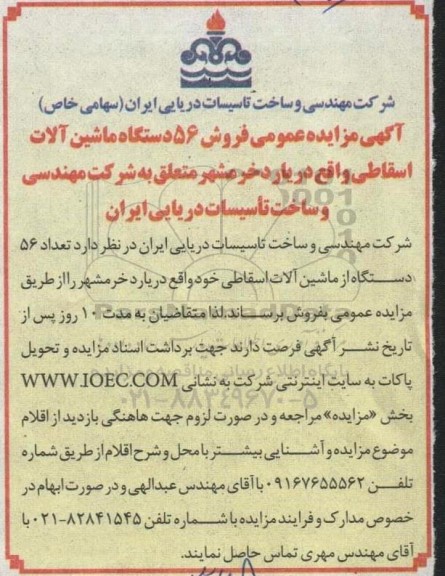 شرکت مهندسی و ساخت تاسیسات دریایی ایران (سهامی خاص)
آگهی مزایده عمومی فروش ۵۶ دستگاه ماشین آلات
اسقاطی واقع در یارد خرمشهر متعلق به شرکت مهندسی
و ساخت تأسیسات دریایی ایران
شرکت مهندسی و ساخت تاسیسات دریایی ایران در نظر دارد تعداد ۵۶
دستگاه از ماشین آلات اسقاطی خود واقع در یارد خرمشهر را از طریق
مزایده عمومی بفروش برساند لذا متقاضیان به مدت ۱۰ روز پس از
تاریخ نشر آگهی فرصت دارند جهت برداشت اسناد مزایده و تحویل
پاکات به سایت اینترنتی شرکت به نشانی WWW.IOEC.COM
بخش «مزایده» مراجعه و در صورت لزوم جهت هاهنگی بازدید از اقلام
موضوع مزایده و آشنایی بیشتر با محل و شرح اقلام از طریق شماره
تلفن ۰۹۱۶۷۶۵۵۵۶۲ با آقای مهندس عبدالهی و در صورت ابهام در
خصوص مدارک و فرایند مزایده با شماره تلفن ۸۲۸۴۱۵۴۵-۰۲۱ با
آقای مهندس مهری تماس حاصل نمایند.
۰۲۱-۸۸۳۴۹۶۷۰-۵